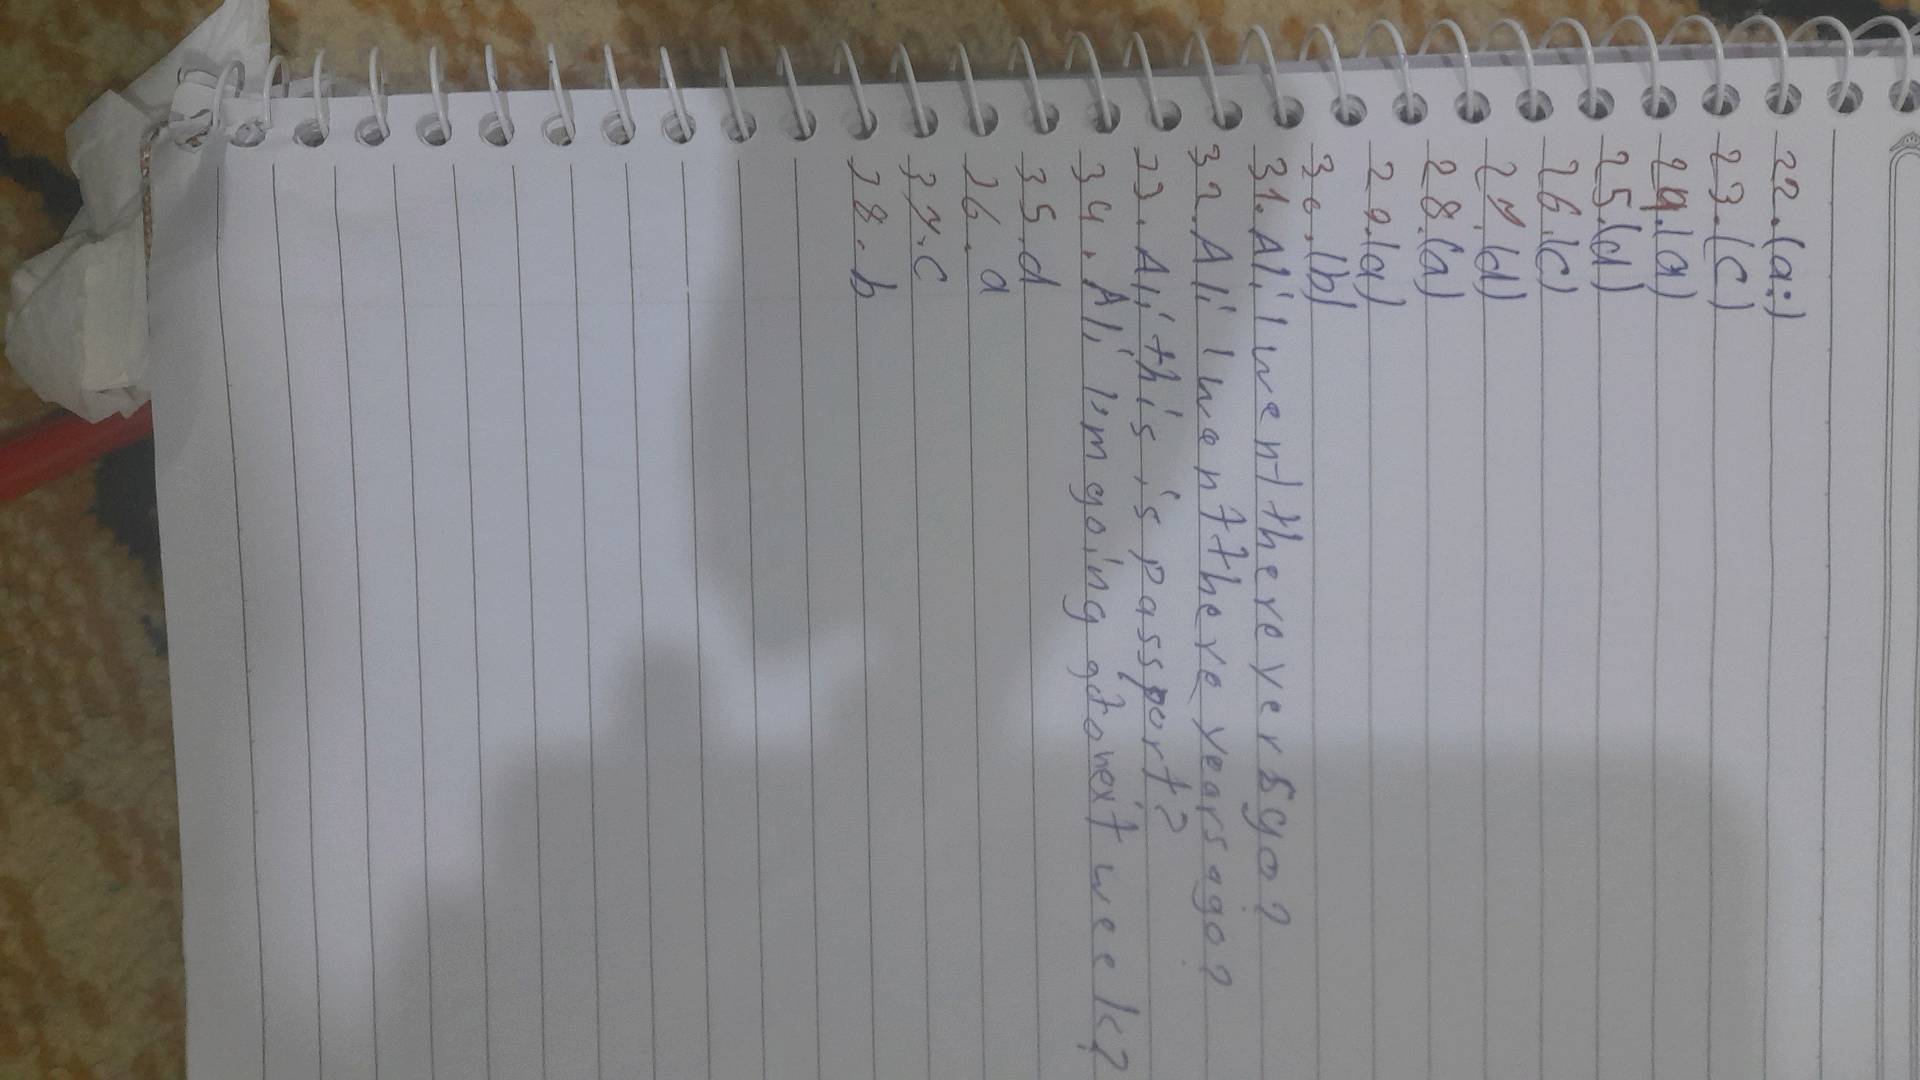 22.(a:)
23.(c)
24.(a)
25.(d)
26.(c)
27.(d)
28.(a)
29.(a)
30.(b)
31. Ali I went there yer 5 go?
32. Ali I want there years ago?
33. Ali this is passport?
34. Ali I'm going goto next week?
35. d
36. a
37. c
38. b